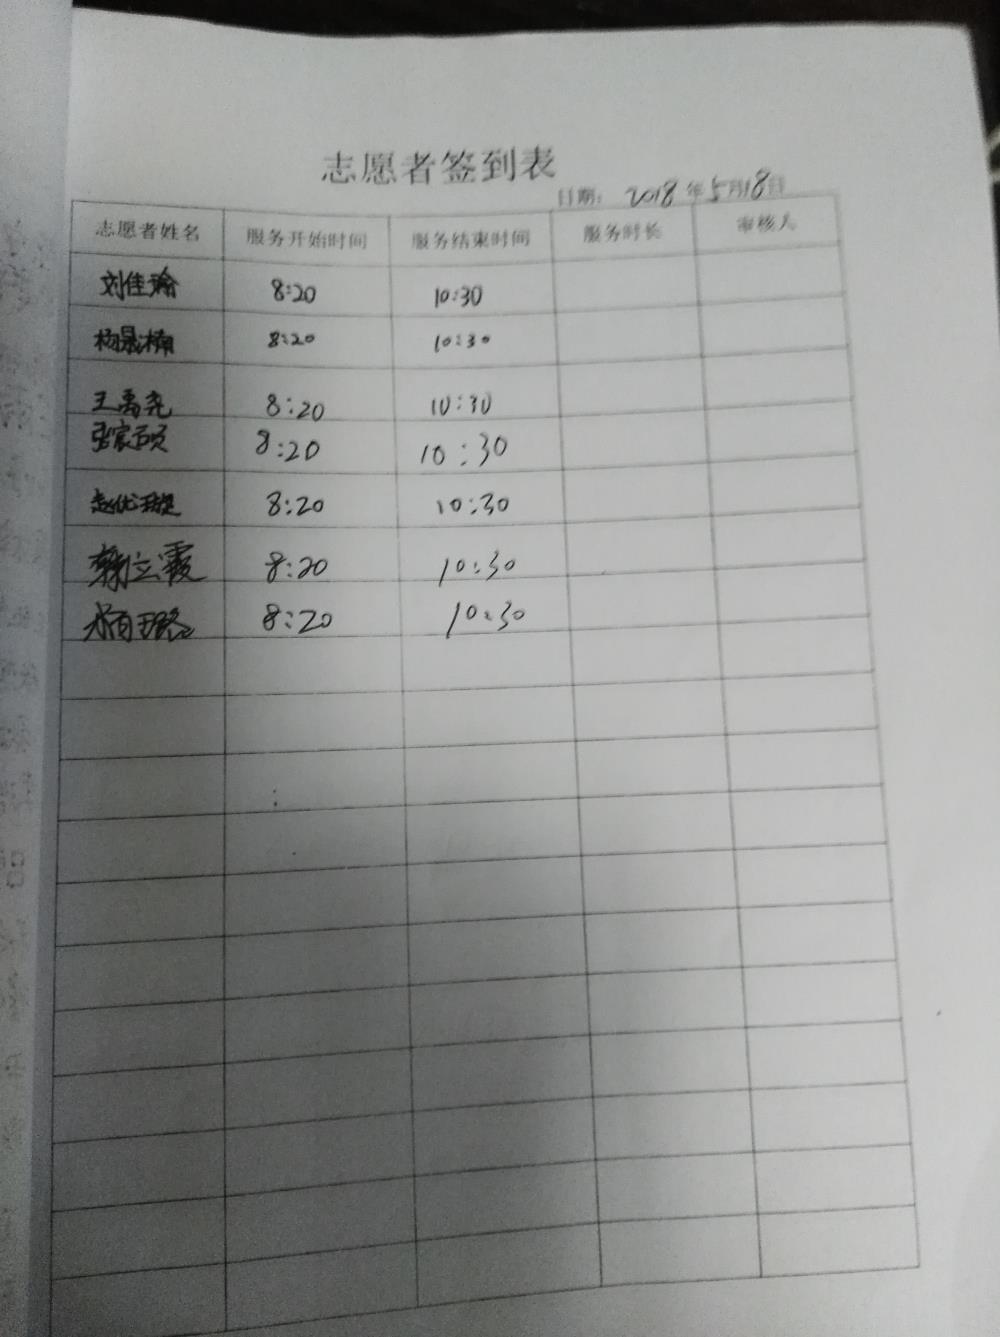 志愿者签到表
日期： 2018年5月18日
志愿者姓名 服务开始时间 服务结束时间 服务时长 审核人
刘佳瑜 8:20 10:30
杨晟楠 8:20 10:30
王禹尧 8:20 10:30
张宸硕 8:20 10:30
赵优 8:20 10:30
韩立霞 8:20 10:30
8:20 10:30